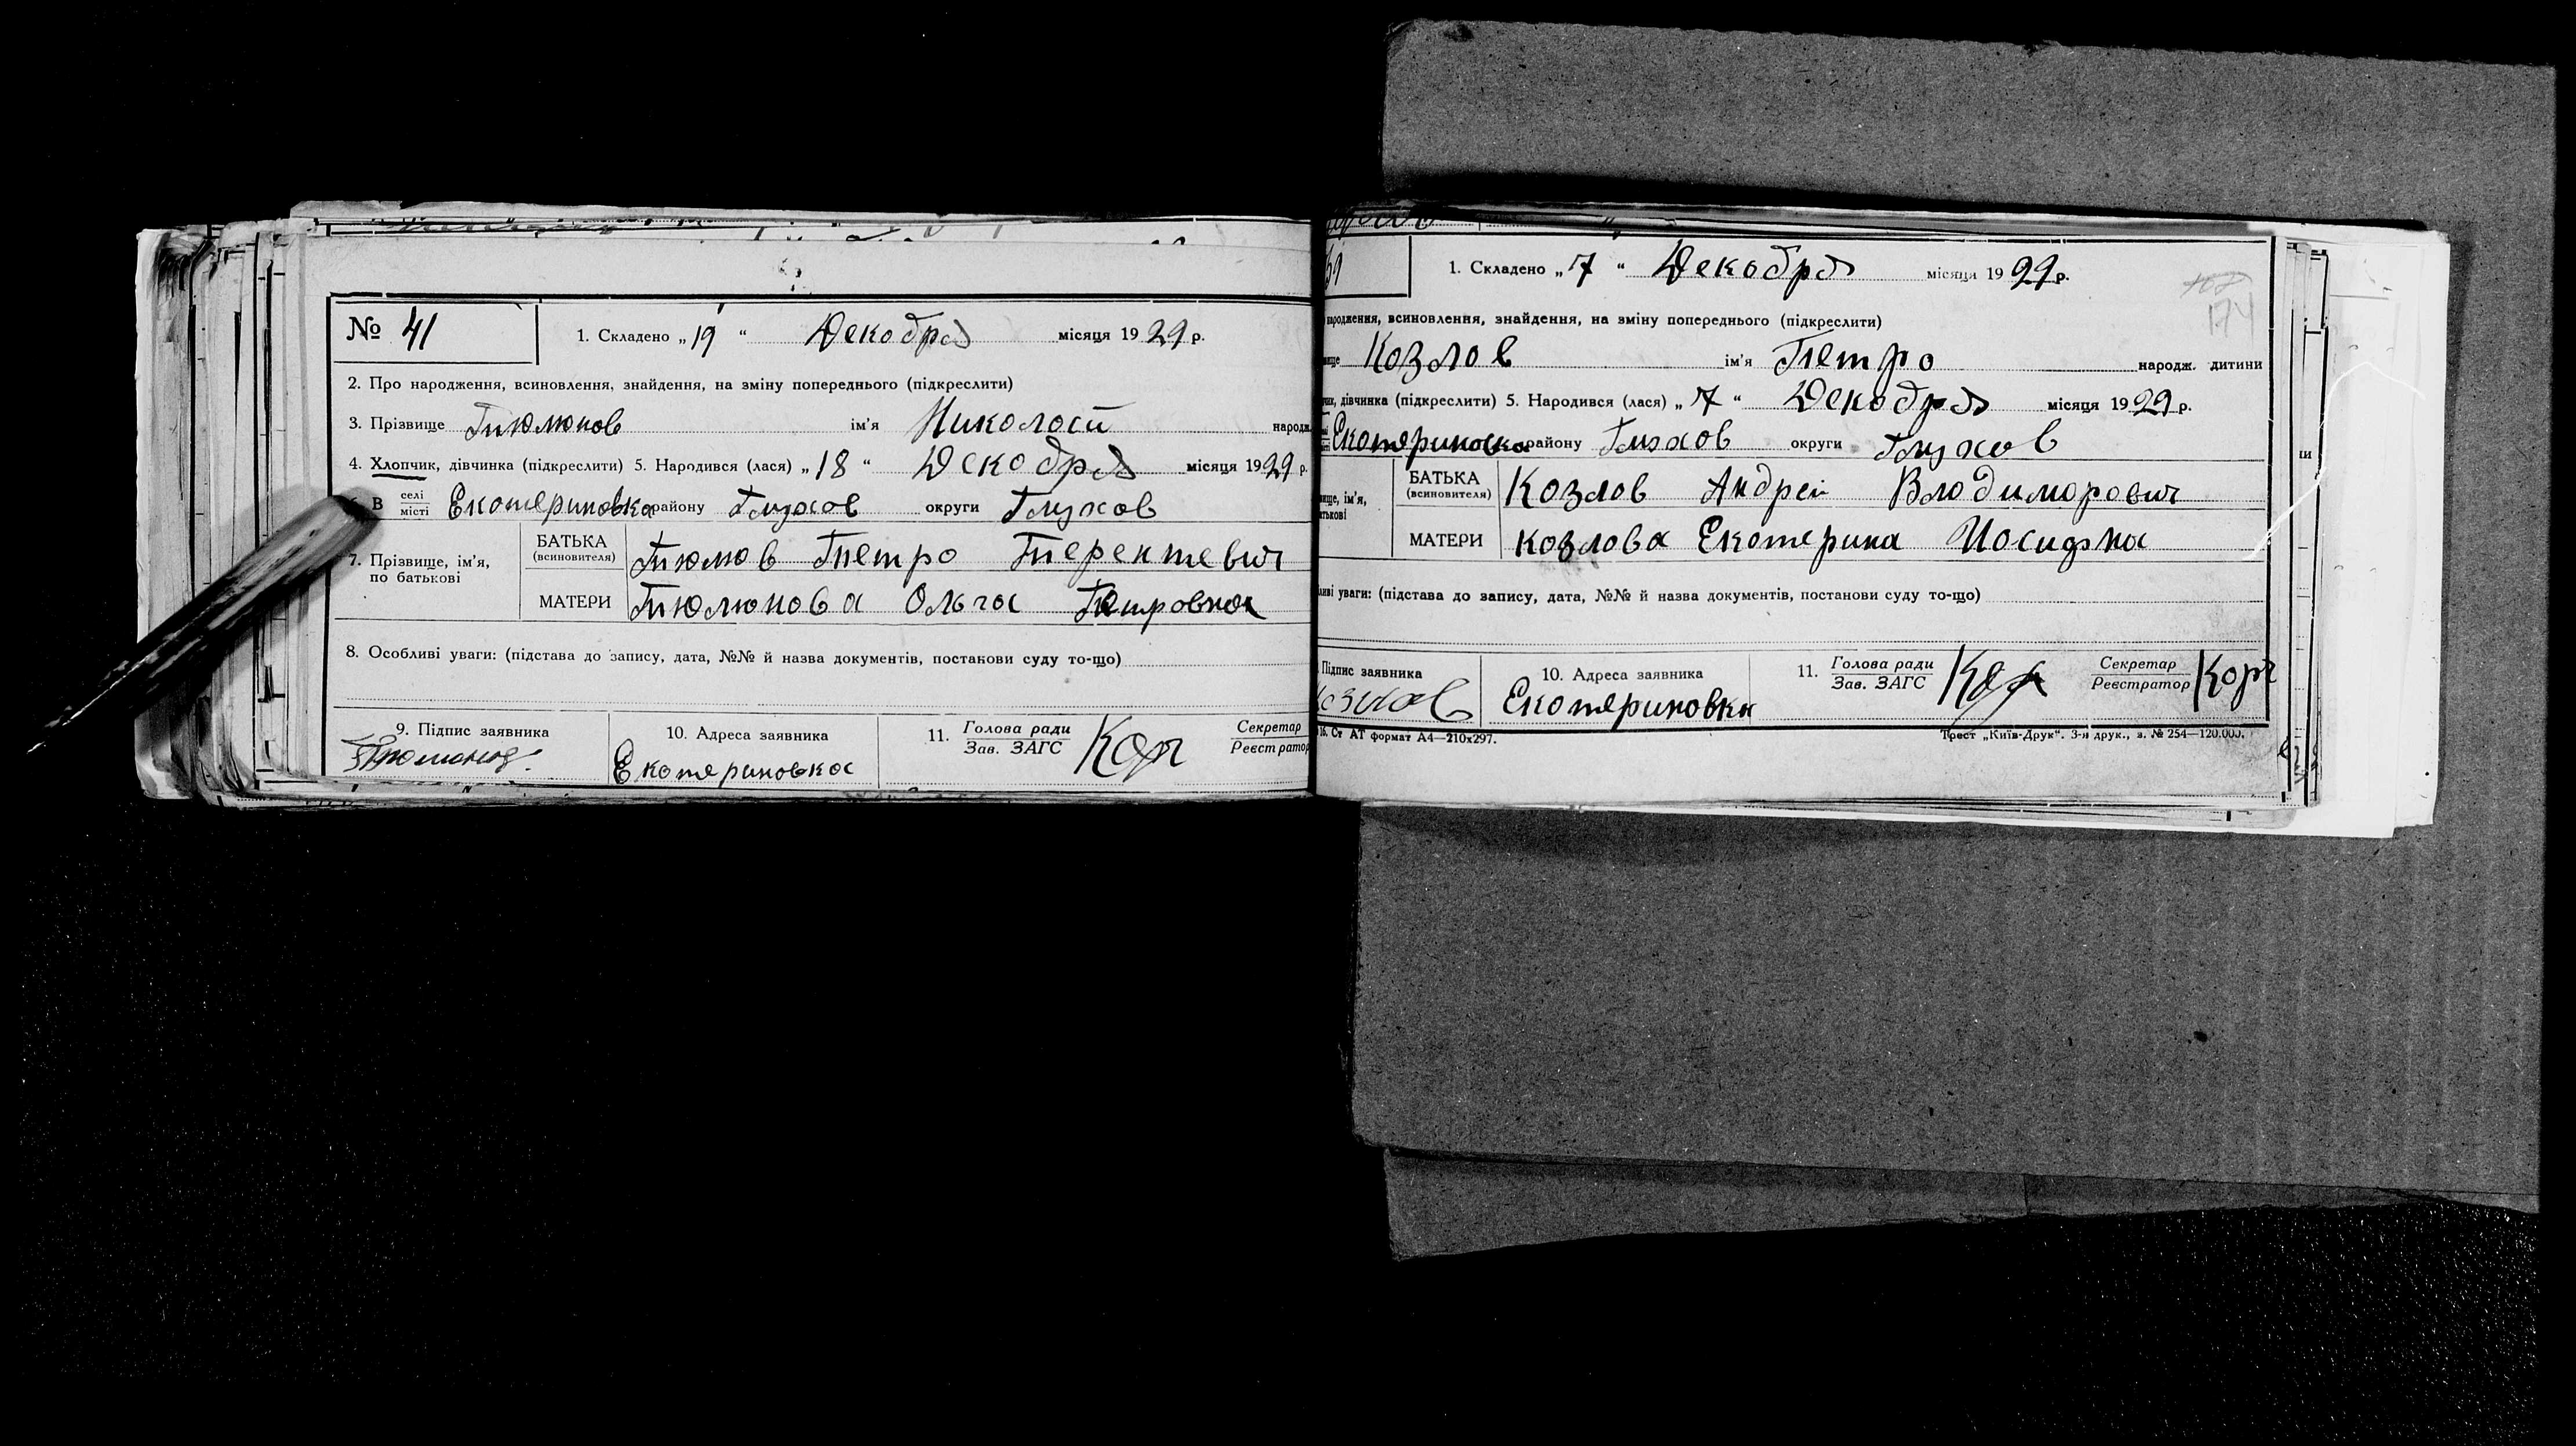 № 41
1. Складено „19“ Декабря місяця 1929 р.
2. Про народження, всиновлення, знайдення, на зміну попереднього (підкреслити)
3. Прізвище Тюлюнов ім'я Николай народж.
4. Хлопчик, дівчинка (підкреслити) 5. Народився (лася) „18“ Декабря місяця 1929 р.
6. В селі місті Екатериновка району Глухов округи Глухов
7. Прізвище, ім'я, по батькові
БАТЬКА (всиновителя) Тюлюв Петро Терентевич
МАТЕРИ Тюлюнова Ольга Петровна
8. Особливі уваги: (підстава до запису, дата, №№ й назва документів, постанови суду то-що)
9. Підпис заявника
10. Адреса заявника Екатериновка
11. Голова ради Зав. ЗАГС
Секретар Реєстратор
39
1. Складено „7“ Декабря місяця 1929 р.
174
народження, всиновлення, знайдення, на зміну попереднього (підкреслити)
Козлов ім'я Петро народж. дитини
дівчинка (підкреслити) 5. Народився (лася) „7“ Декабря місяця 1929 р.
Екатериновка району Глухов округи Глухов
ім'я,
БАТЬКА (всиновителя) Козлов Андрей Владимирович
МАТЕРИ Козлова Екатерина Иосифна
уваги: (підстава до запису, дата, №№ й назва документів, постанови суду то-що)
Підпис заявника Козлов
10. Адреса заявника Екатериновка
11. Голова ради Зав. ЗАГС
Секретар Реєстратор
16. Ст АТ формат А4—210х297.
Трест „Київ-Друк“. 3-я друк., з. № 254—120.000.